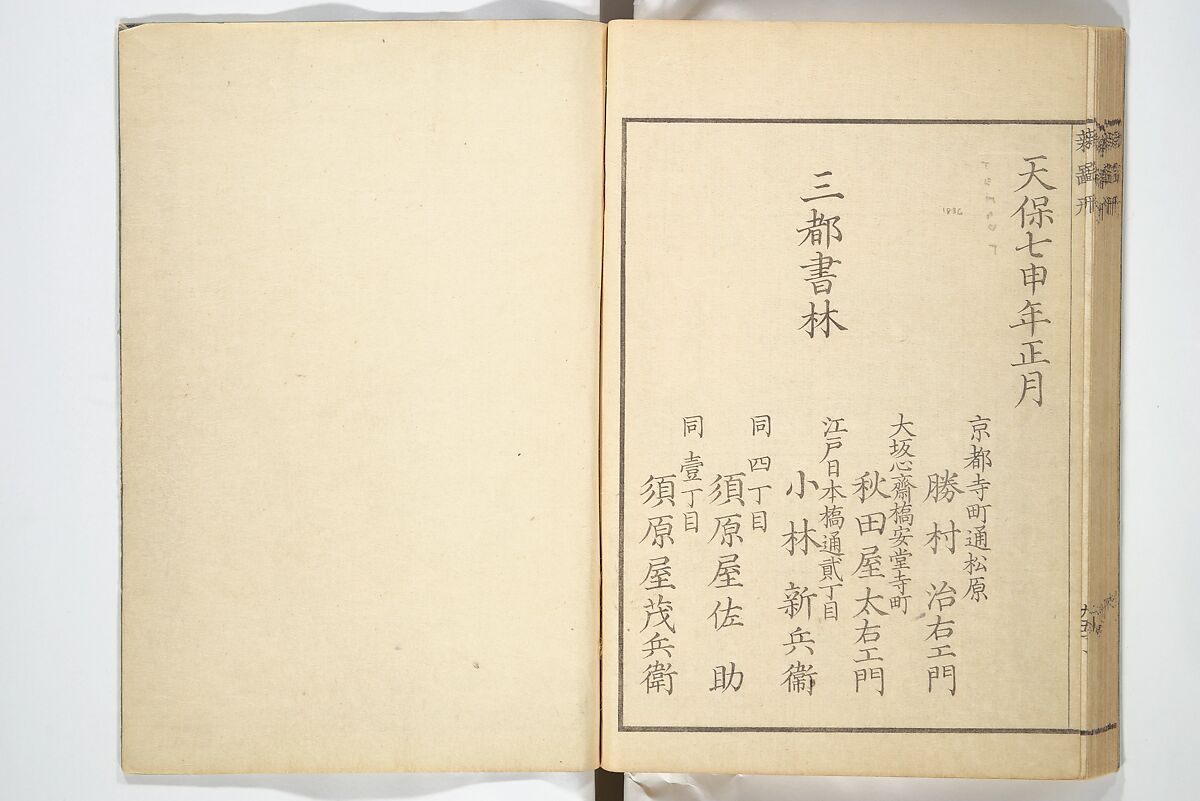 天保七申年正月
1836
三都書林
京都寺町通松原
勝村治右エ門
大坂心齋橋安堂寺町
秋田屋太右エ門
江戸日本橋通貳丁目
小林新兵衞
同四丁目
須原屋佐助
同壹丁目
須原屋茂兵衛